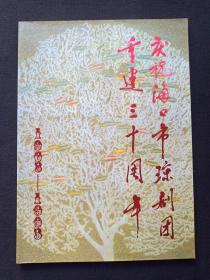 庆祝海口市琼剧团
重建三十周年